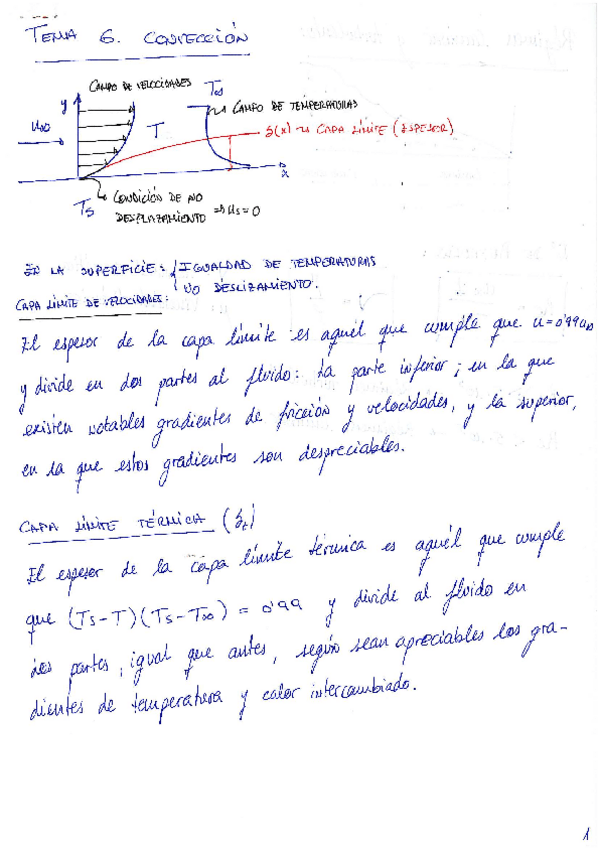 TEMA 6. CONVECCIÓN
CAMPO DE VELOCIDADES
T∞
y
CAMPO DE TEMPERATURAS
u∞
T
δ(x) ~ CAPA LÍMITE (ESPESOR)
x
Ts
CONDICIÓN DE NO
DESPLAZAMIENTO ⇒ us = 0
EN LA SUPERFICIE: { IGUALDAD DE TEMPERATURAS
NO DESLIZAMIENTO.
CAPA LÍMITE DE VELOCIDADES:
El espesor de la capa límite es aquél que cumple que u=0'99u∞
y divide en dos partes al fluido: La parte inferior; en la que
existen notables gradientes de fricción y velocidades, y la superior,
en la que estos gradientes son despreciables.
CAPA LÍMITE TÉRMICA (δt)
El espesor de la capa límite térmica es aquél que cumple
que (Ts-T)(Ts-T∞) = 0'99 y divide al fluido en
dos partes, igual que antes, según sean apreciables los gra-
dientes de temperatura y calor intercambiado.
1